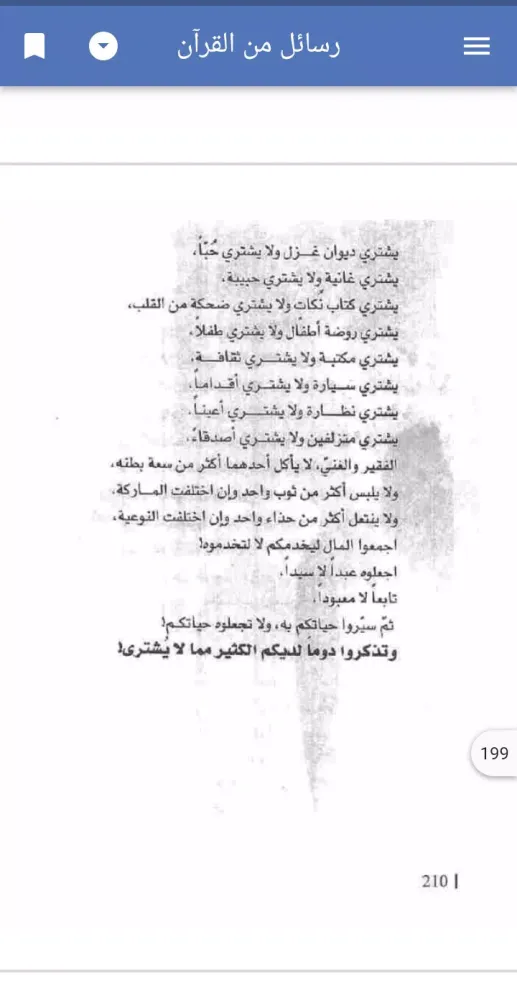 رسائل من القرآن
يشتري ديوان غــزل ولا يشتري حُبّاً،
يشتري غانية ولا يشتري حبيبة،
يشتري كتاب نُكات ولا يشتري ضحكة من القلب،
يشتري روضة أطفال ولا يشتري طفلاً،
يشتري مكتبة ولا يشتــري ثقافــة،
يشتري سـيارة ولا يشتري أقـدامـاً،
يشتري نظـارة ولا يشتــري أعينـاً،
يشتري متزلفين ولا يشتري أصدقاءً،
الفقير والغنيّ، لا يأكل أحدهما أكثر من سعة بطنه،
ولا يلبس أكثر من ثوب واحد وإن اختلفت المـاركة،
ولا ينتعل أكثر من حذاء واحد وإن اختلفت النوعية،
اجمعوا المال ليخدمكم لا لتخدموه!
اجعلوه عبداً لا سيداً،
تابعاً لا معبوداً،
ثمّ سيّروا حياتكم به، ولا تجعلوه حياتكـم!
وتذكروا دوماً لديكم الكثير مما لا يُشترى!
199
210 |